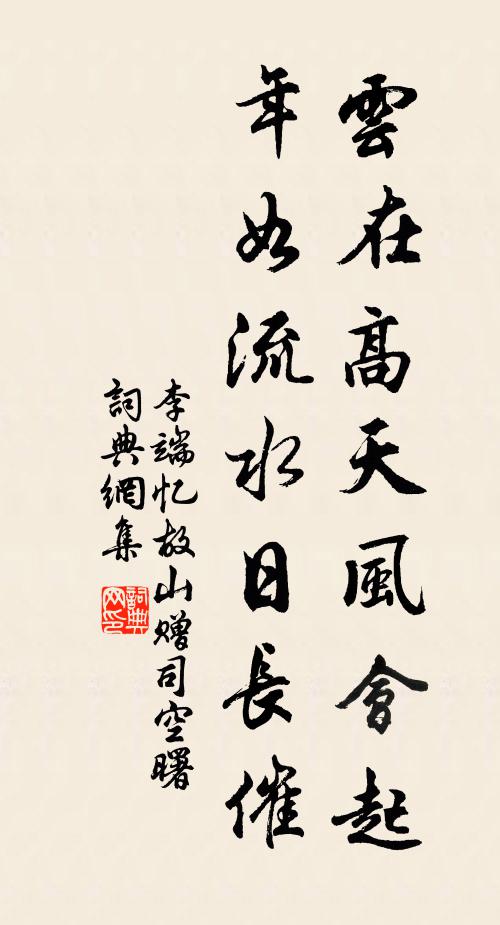 雲在高天風會起
年如流水日長催
李端忆故山赠司空曙
詞典網集
詞典网印